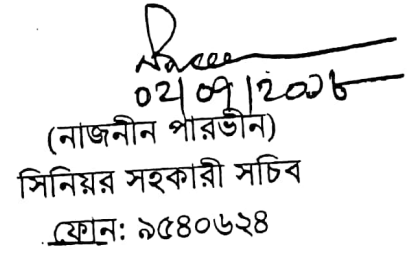 02/09/2008
(নাজনীন পারভীন)
সিনিয়র সহকারী সচিব
ফোন: ৯৫৪০৬২৪